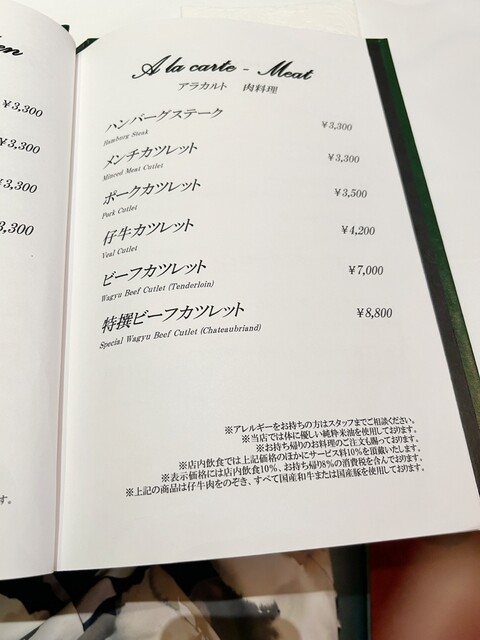 en
¥3,300
¥3,300
¥3,300
¥3,300
す。
A la carte - Meat
アラカルト 肉料理
ハンバーグステーク ¥3,300
Hamburg Steak
メンチカツレット ¥3,300
Minced Meat Cutlet
ポークカツレット ¥3,500
Pork Cutlet
仔牛カツレット ¥4,200
Veal Cutlet
ビーフカツレット ¥7,000
Wagyu Beef Cutlet (Tenderloin)
特撰ビーフカツレット ¥8,800
Special Wagyu Beef Cutlet (Chateaubriand)
※アレルギーをお持ちの方はスタッフまでご相談ください。
※当店では体に優しい純粋米油を使用しております。
※お持ち帰りのお料理のご注文も賜っております。
※店内飲食では上記価格のほかにサービス料10%を頂戴いたします。
※表示価格には店内飲食10%、お持ち帰り8%の消費税を含んでおります。
※上記の商品は仔牛肉をのぞき、すべて国産和牛または国産豚を使用しております。